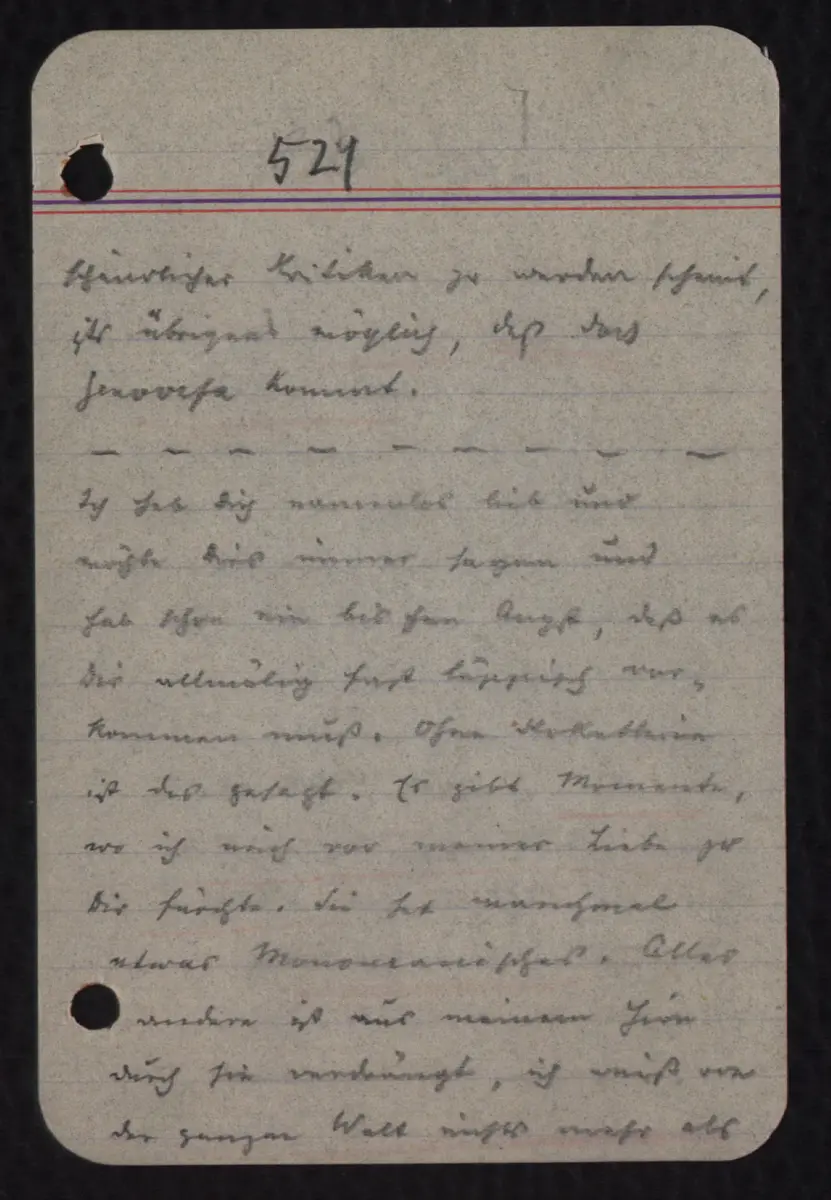 529
scheusslicher Kritiken zu werden scheint,
ists übrigens möglich, daß doch
Genovefa kommt.
Ich hab Dich namenlos lieb und
möchte Dirs immer sagen und
hab schon ein bischen Angst, daß es
Dir allmälig fast läppisch vor-
kommen muß. Ohne Koketterie
ist das gesagt. Es gibt Momente,
wo ich mich vor meiner Liebe zu
Dir fürchte. Sie hat manchmal
etwas Monomanisches. Alles
andere ist aus meinem Hirn
durch sie verdrängt, ich weiß von
der ganzen Welt nichts mehr als